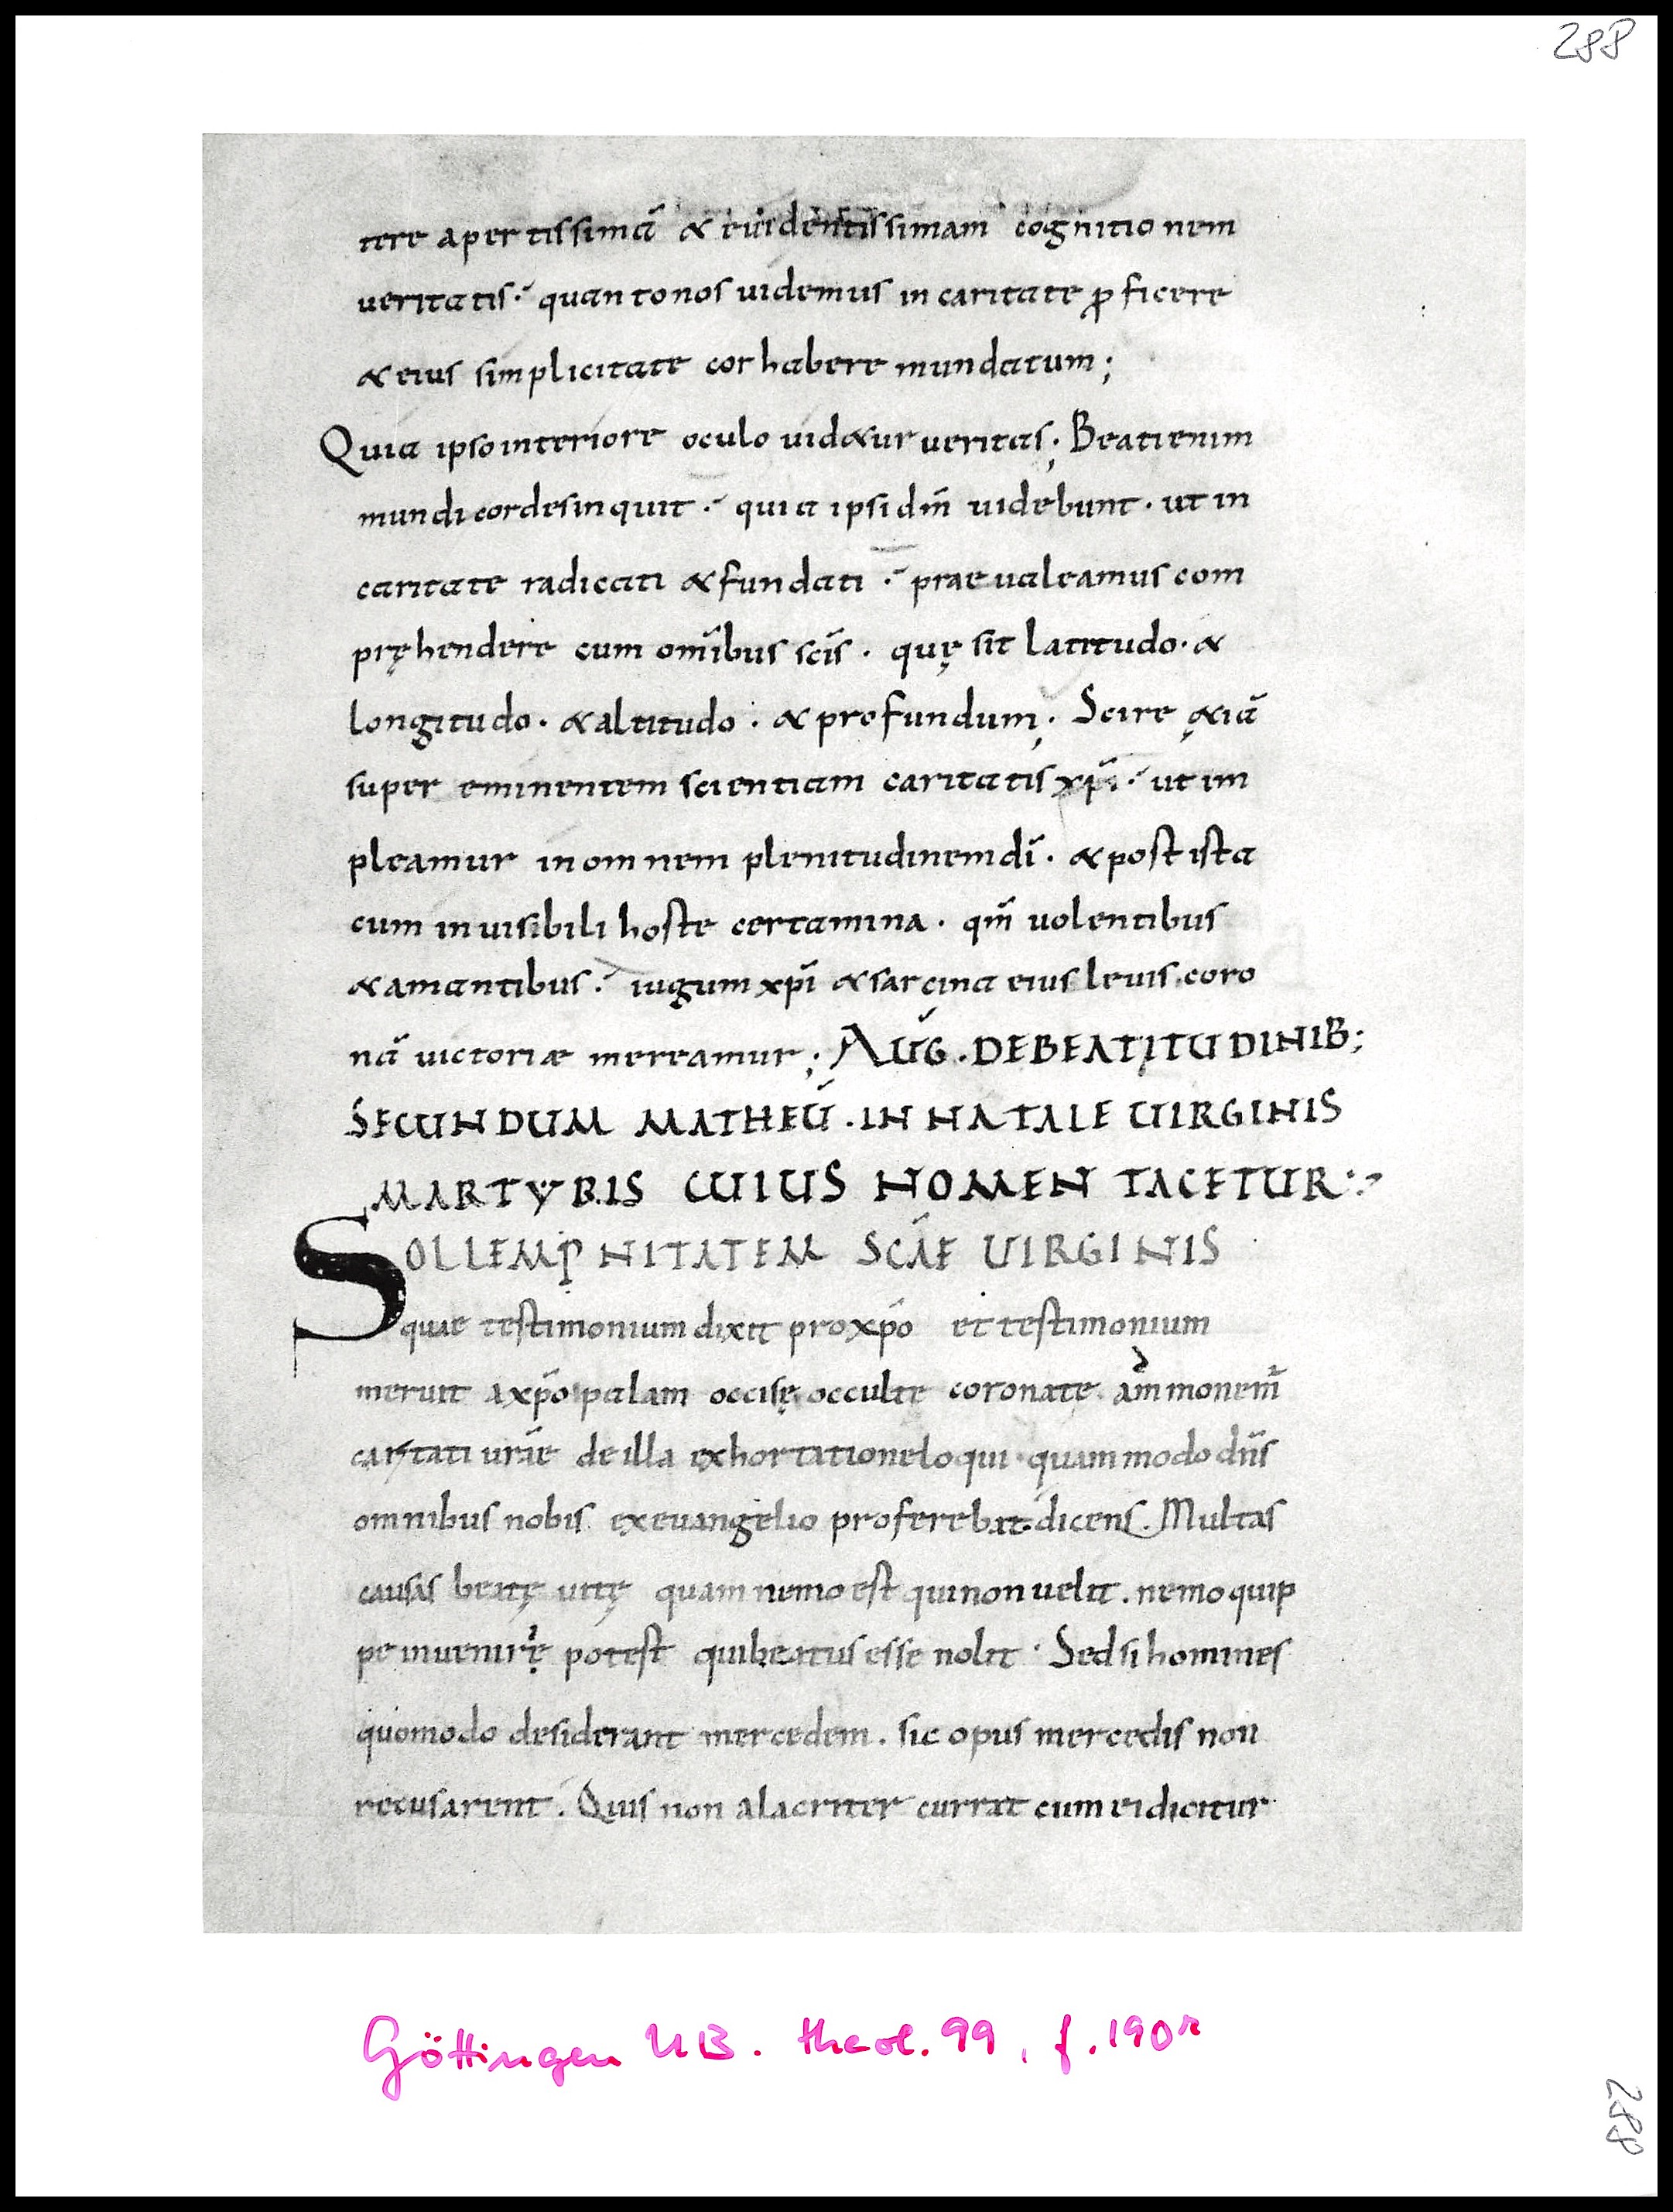 288
tere apertissimā & euidentissimam cognitionem
ueritatis· quanto nos uidemus in caritate ꝓficere
& eius simplicitate cor habere mundatum;
Quia ipso interiore oculo uid&ur ueritas; Beati enim
mundi cordes inquit· quia ipsi dm̄ uidebunt· ut in
caritate radicati & fundati· praeualeamus com
pręhendere cum om̄ibus scīs· quę sit latitudo· &
longitudo· & altitudo· & profundum; Scire ę&iā
super eminentem scientiam caritatis xpī· ut im
pleamur in omnem plenitudinem dī· & post ista
cum inuisibili hoste certamina· qm̄ uolentibus
& amantibus· iugum xpī & sarcina eius leuis· coro
nā uictoriæ mereamur; AUḠ· DE BEATITUDINIB;
SECUNDUM MATHEŪ· IN NATALE UIRGINIS
MARTYRIS CUIUS NOMEN TACETUR
SOLLEMPNITATEM SCĀE UIRGINIS
quae testimonium dixit pro xpō et testimonium
meruit a xpō palam occisę occulte coronatę am̄monem̄
caritati urāe de illa exhortatione loqui· quam modo dn̄s
omnibus nobis ex euangelio proferebat· dicens. Multas
causas beatę uitę quam nemo est qui non uelit. nemo quip
pe inuenirę potest qui beatus esse nolit· Sed si homines
quomodo desiderant mercedem. sic opus mercedis non
recusarent. Quis non alacriter currat cum ei dicitur
Göttingen UB. theol. 99, f. 190r
288